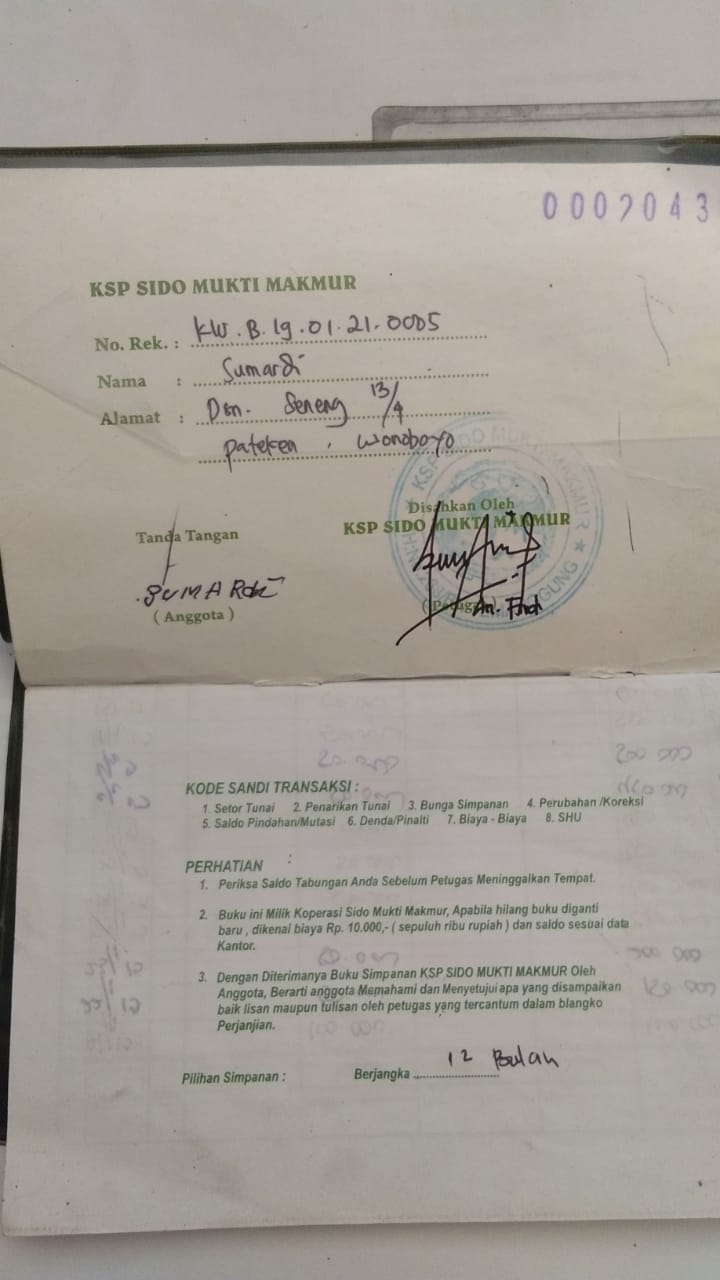 0002043
KSP SIDO MUKTI MAKMUR
No. Rek. : KW.B.19.01.21.0005
Nama : Sumardi
Alamat : Dsn. Seneng 13/4
Pateken, Wonoboyo
Disahkan Oleh
Tanda Tangan KSP SIDO MUKTI MAKMUR
SUMARDI
( Anggota )
KODE SANDI TRANSAKSI :
1. Setor Tunai 2. Penarikan Tunai 3. Bunga Simpanan 4. Perubahan /Koreksi
5. Saldo Pindahan/Mutasi 6. Denda/Pinalti 7. Biaya - Biaya 8. SHU
PERHATIAN :
1. Periksa Saldo Tabungan Anda Sebelum Petugas Meninggalkan Tempat.
2. Buku ini Milik Koperasi Sido Mukti Makmur, Apabila hilang buku diganti
baru , dikenai biaya Rp. 10.000,- ( sepuluh ribu rupiah ) dan saldo sesuai data
Kantor.
3. Dengan Diterimanya Buku Simpanan KSP SIDO MUKTI MAKMUR Oleh
Anggota, Berarti anggota Memahami dan Menyetujui apa yang disampaikan
baik lisan maupun tulisan oleh petugas yang tercantum dalam blangko
Perjanjian.
Pilihan Simpanan : Berjangka 12 Bulan